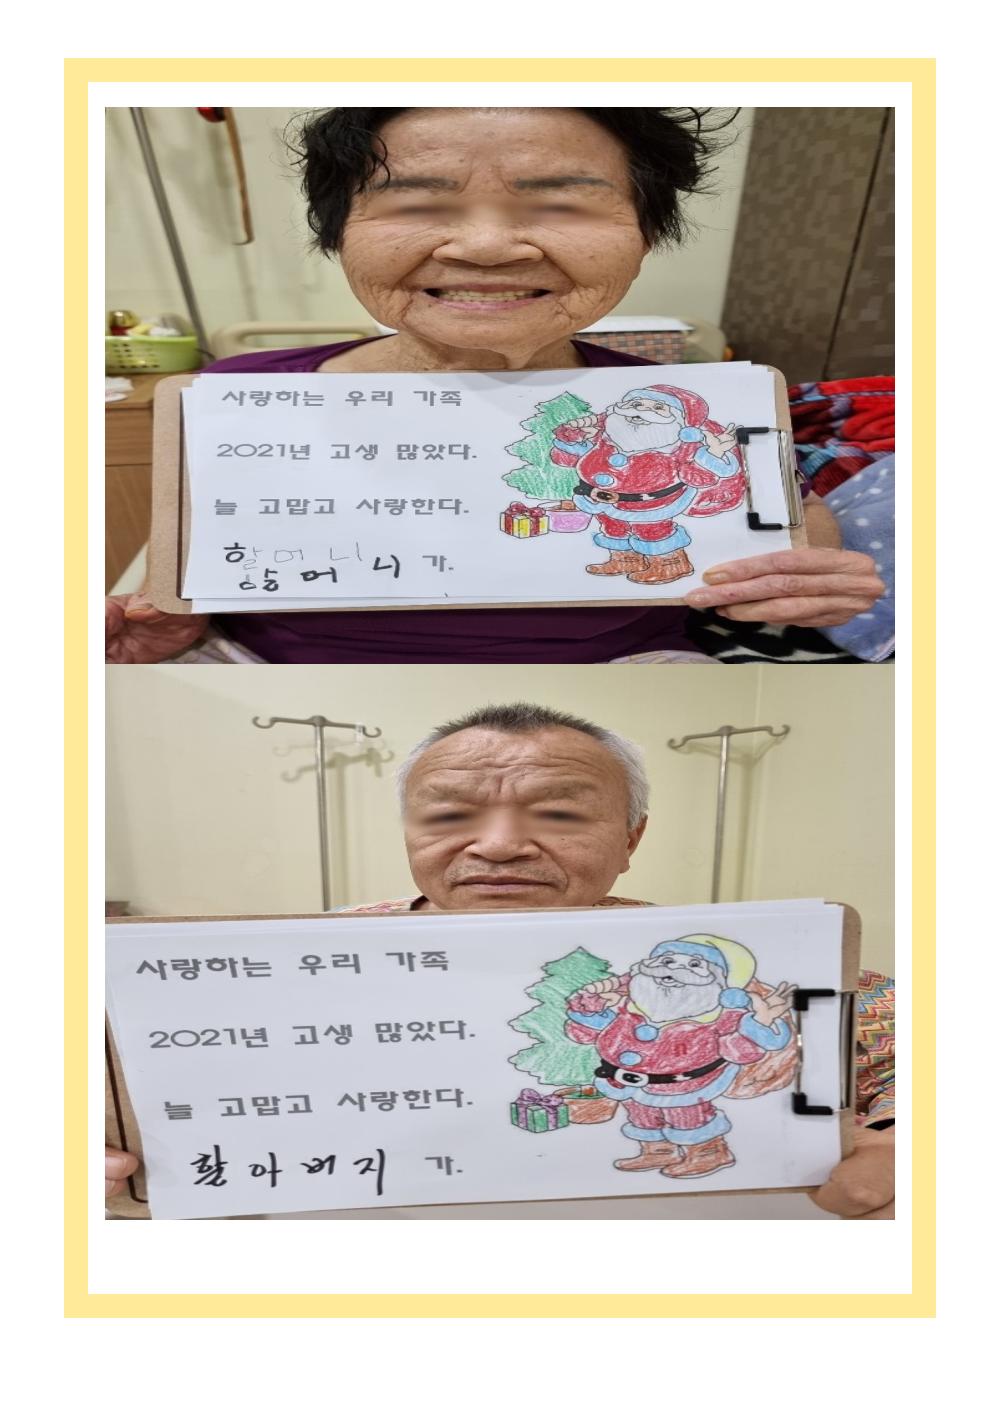 사랑하는 우리 가족
2021년 고생 많았다.
늘 고맙고 사랑한다.
할머니
할머니 가.
사랑하는 우리 가족
2021년 고생 많았다.
늘 고맙고 사랑한다.
할아버지 가.